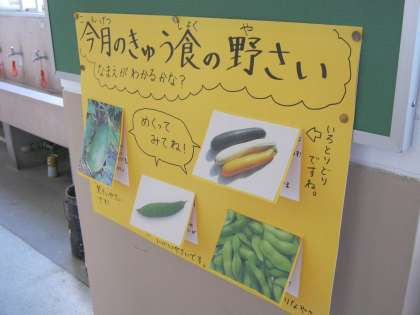 今月のきゅう食の野さい
いげつ
しょく
や
なまえがわかるかな？
めくって
みてね！
いろとりどり
ですね。